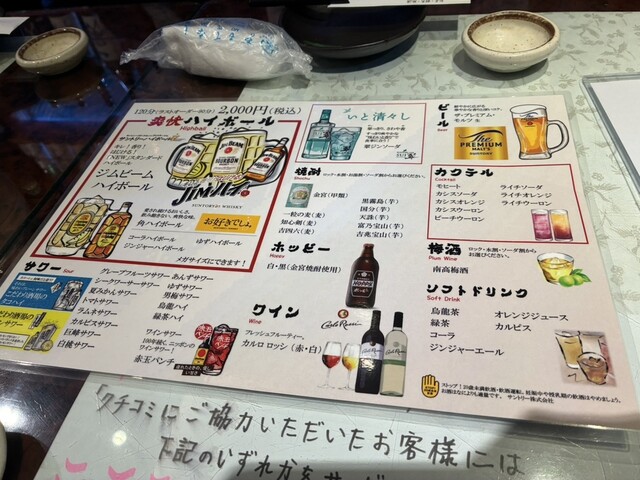 120分(ラストオーダー30分) 2,000円(税込)
爽快ハイボール
Highball
ジムビーム
ハイボール
JIM BEAM
BOURBON
角ハイボール
お好きでしょ
コーラハイボール
ゆずハイボール
ジンジャーハイボール
メガサイズにできます!
いと清々し
翠ジンソーダ
ビール
Beer
ザ・プレミアム・
モルツ 生
The
PREMIUM
MALT'S
SUNTORY
焼酎
Shochu
ロック・水割・お湯割・ソーダ割からお選びください。
金宮(甲類)
一粒の麦(麦)
知心剣(麦)
吉四六(麦)
黒霧島(芋)
国分(芋)
天誅(芋)
富乃宝山(芋)
吉兆宝山(芋)
カクテル
Cocktail
モヒート
カシスソーダ
カシスオレンジ
カシスウーロン
ピーチウーロン
ライチソーダ
ライチオレンジ
ライチウーロン
サワー
Sour
グレープフルーツサワー
シークワーサーサワー
夏みかんサワー
トマトサワー
ラムネサワー
カルピスサワー
巨峰サワー
白桃サワー
あんずサワー
ゆずサワー
黒梅サワー
烏龍ハイ
緑茶ハイ
ワインサワー
100年続く、ニッポンの
ワインサワー!
赤玉パンチ
ホッピー
Hoppy
白・黒(金宮焼酎使用)
HOPPY
ワイン
Wine
フレッシュ フルーティー、
カルロ ロッシ(赤・白)
Carlo Rossi
梅酒
Plum Wine
ロック・水割・ソーダ割から
お選びください。
南高梅酒
ソフトドリンク
Soft Drink
烏龍茶
緑茶
コーラ
ジンジャーエール
オレンジジュース
カルピス
ストップ!20歳未満飲酒・飲酒運転。妊娠中や授乳期の飲酒はやめましょう。
お酒はなによりも適量です。 サントリー株式会社
「クチコミにご協力いただいたお客様には
下記のいずれかを